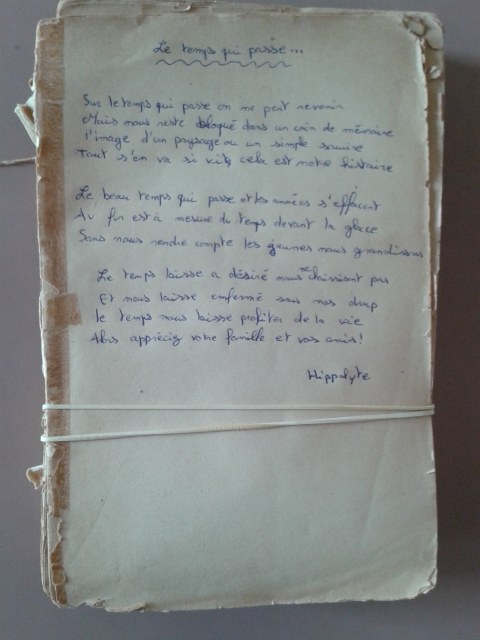 Le temps qui passe...
Sur le temps qui passe on ne peut revenir
Mais nous reste bloqué dans un coin de mémoire
l'image d'un paysage ou un simple sourire
Tout s'en va si vite, cela est notre histoire
Le beau temps qui passe et les années s'effacent
Au fur est à mesure du temps devant la glace
Sans nous rendre compte les jeunes nous grandissons
Le temps laisse a désiré nous ne choisissont pas
Et nous laisse enfermé sous nos drap
le temps nous laisse profiter de la vie
Alors appréciez votre famille et vos amis!
Hippolyte